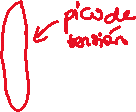 pico de
tensión